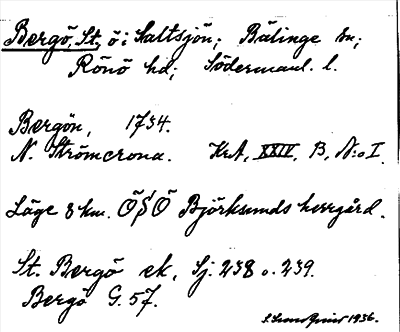 Bergö, St. ö i Saltsjön; Bälinge sn;
Rönö hd; Södermanl. l.
Bergön, 1734.
N. Strömcrona. KrA, XXIV, B, N:o I.
Läge 8 km. ÖSÖ Björksunds herrgård.
St. Bergö ek, Sj. 238 o. 239.
Bergö G. 57.
1936.